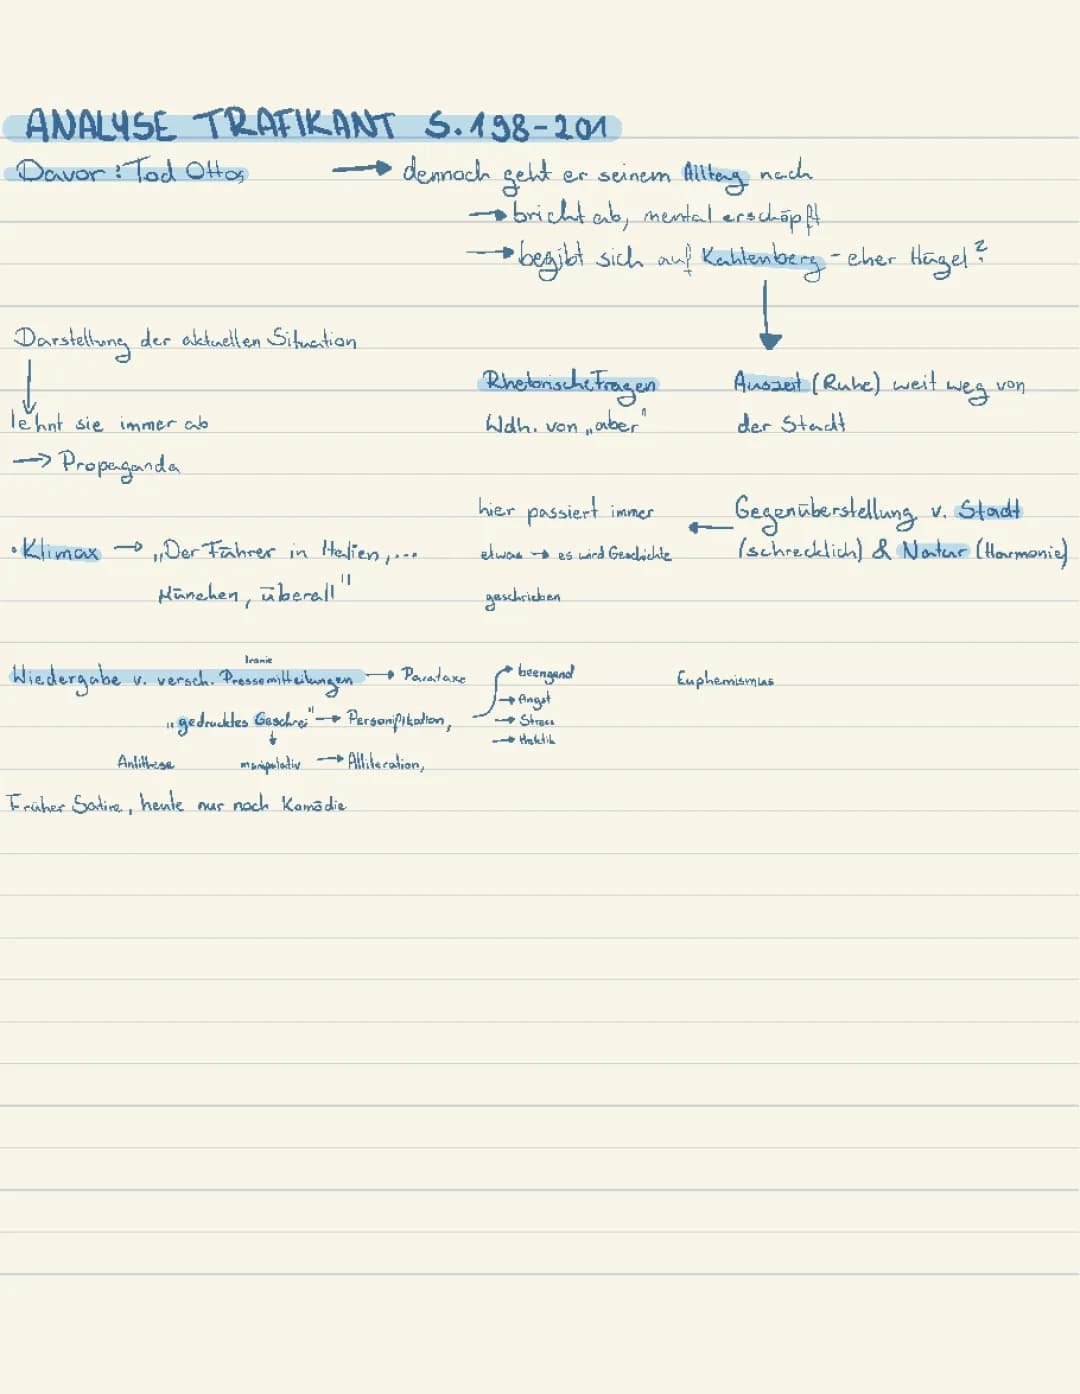 ANALYSE TRAFIKANT S.198-201
Davor: Tod Ottos → dennoch geht er seinem Alltag nach
→ bricht ab, mental erschöpft
→ begibt sich auf Kahlenberg - eher Hügel?
Darstellung der aktuellen Situation
Rhetorische Fragen
Auszeit (Ruhe) weit weg von
lehnt sie immer ab
Wdh. von „aber"
der Stadt
→ Propaganda
hier passiert immer
Gegenüberstellung v. Stadt
• Klimax → „Der Führer in Italien,...
etwas → es wird Geschichte
(schrecklich) & Natur (Harmonie)
München, überall"
geschrieben
Ironie
Wiedergabe v. versch. Pressemitteilungen → Parataxe
→ beengend
Euphemismus
→ Angst
„gedrucktes Geschrei" → Personifikation,
→ Stress
→ Hektik
Antithese
manipulativ → Alliteration,
Früher Satire, heute nur noch Komödie